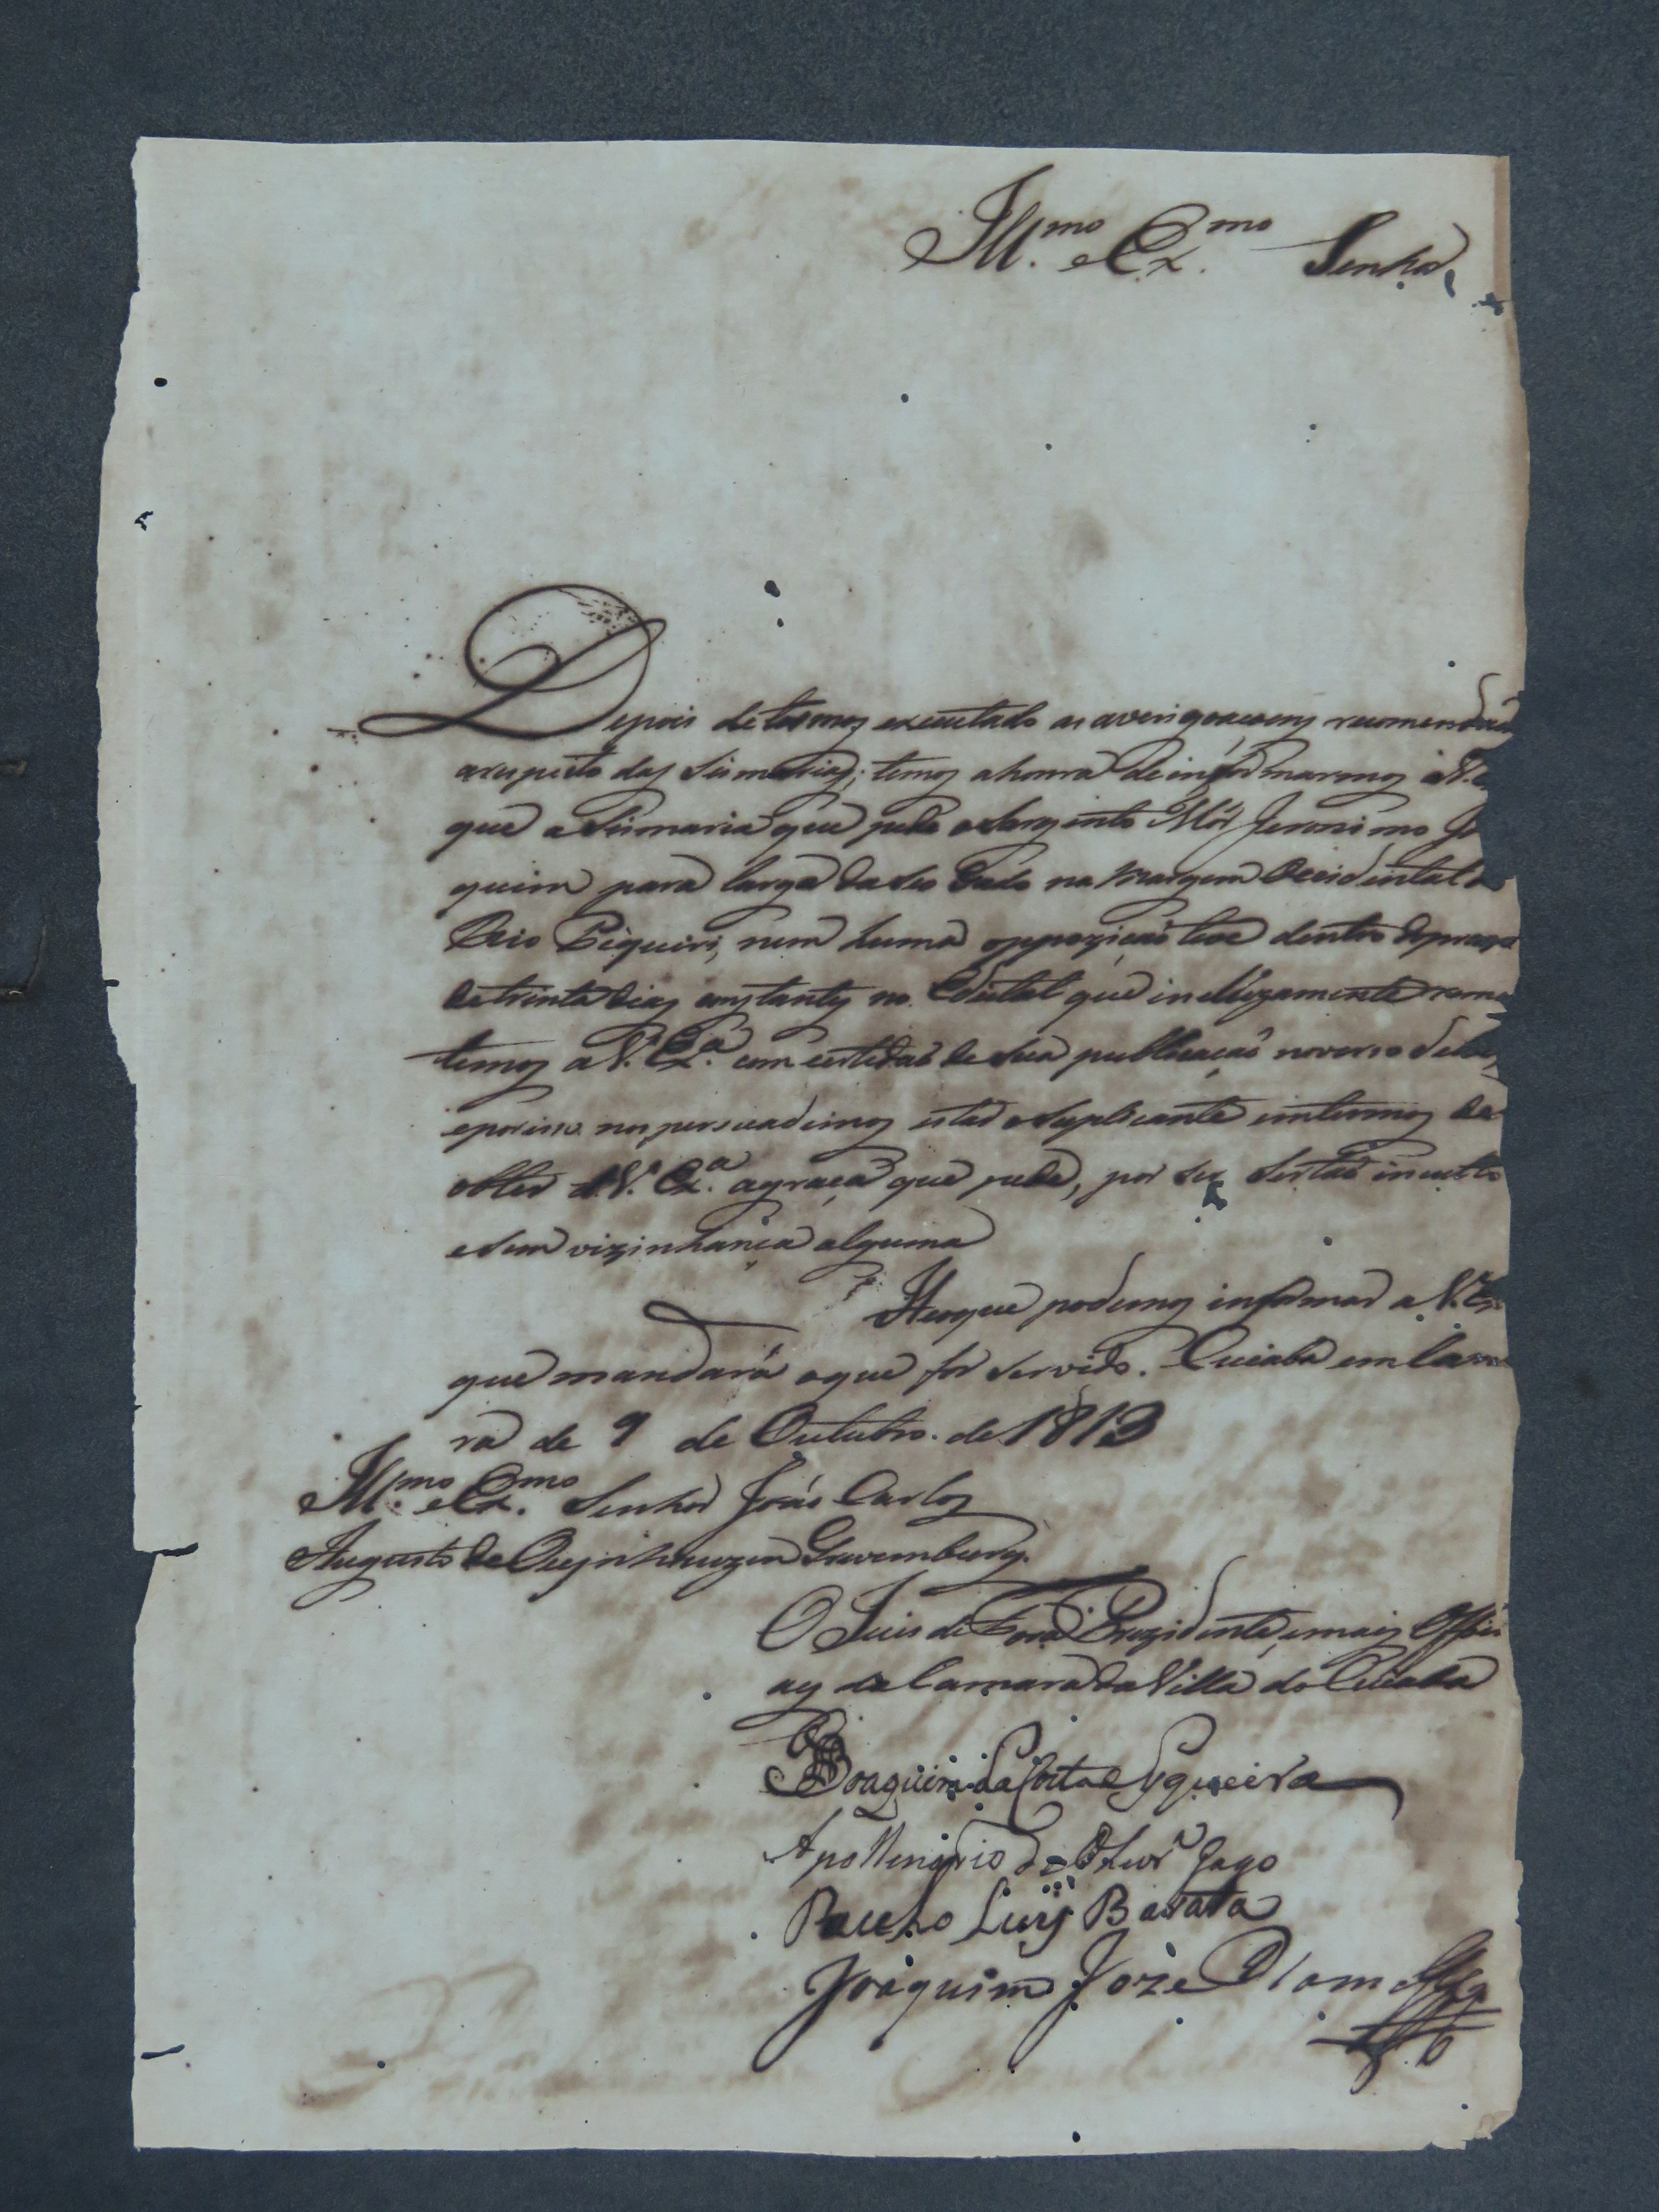 Ill.mo e Ex.mo Senhor,
Depois de termos executado as averigoacoens recomenda
a respeito das Sismarias; temos a honra de informarmos a V.
que a Sismaria que pede o Sargento Mór Jeronimo Jo
quim para larga da seo Gado na Margem Occidental
Rio Piquiri, nem huma oppoziçaõ teve dentro do prazo
de trinta dias constantes no Edital que incluzamente reme
temos a V. Ex.a com certidaõ de sua publicaçaõ no verso dele
e por isso nos persuadimos estar o Suplicante em termos de
obter de V. Ex.a a graça que pede, por ser Sertaõ inculto
e sem vizinhança alguma
He o que podemos informar a V. Ex
que mandará o que for servido. Cuiabá em Cama
ra de 9 de Outubro de 1813
Ill.mo e Ex.mo Senhor Joaõ Carlos
Augusto de Oeynhauzen Gravemburg.
O Juis de Fora Prezidente, e mais Offici
aes da Camara da Villa do Cuiabá
Joaquim da Costa Syqueira
Apollenario de Olivr.a Gago
Paulo Luis Barata
Joaquim Joze